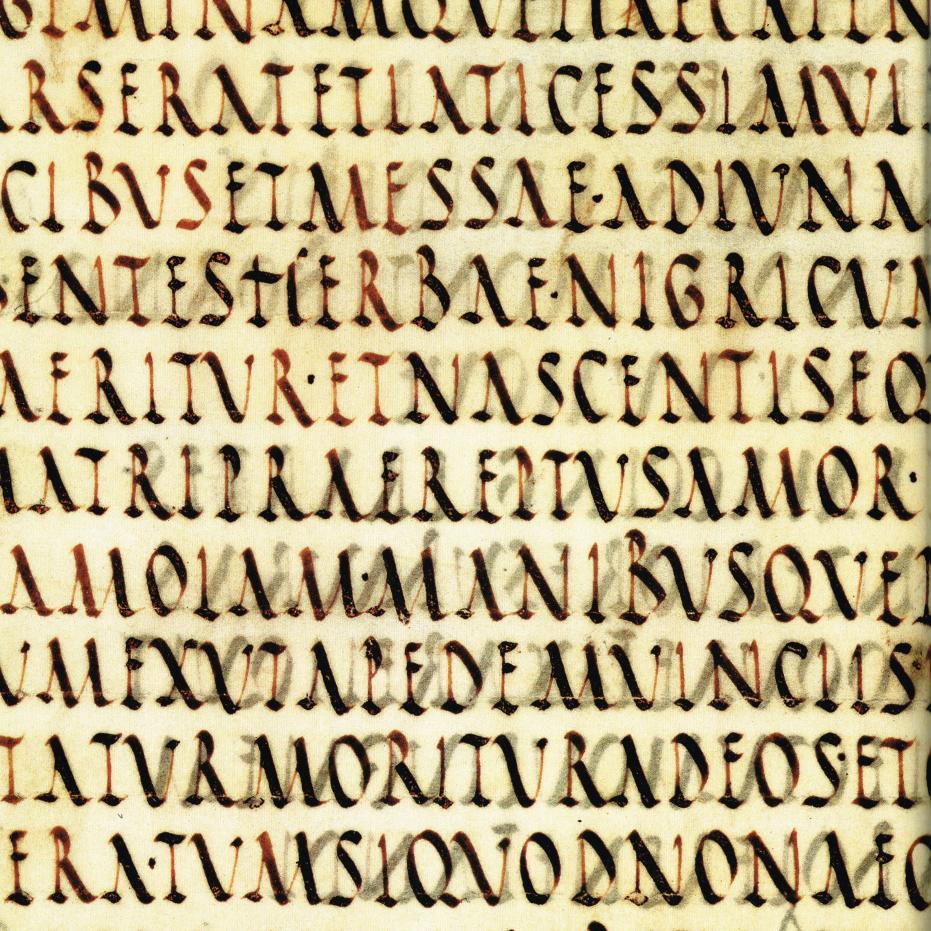 MINAMQVE
RSERATETLATICESSIMVL
CIBVSETMESSAE·ADLVNA
ENTESHERBAE·NIGRICVM
AERITVR·ETNASCENTISEQ
MATRIPRAEREPTVSAMOR·
AMOLAM·MANIBVSQVE
VMEXVTAPEDEMVINCLIS
TATVRMORITVRADEOS·ET
ERA·TVMSIQVODNONAEQ